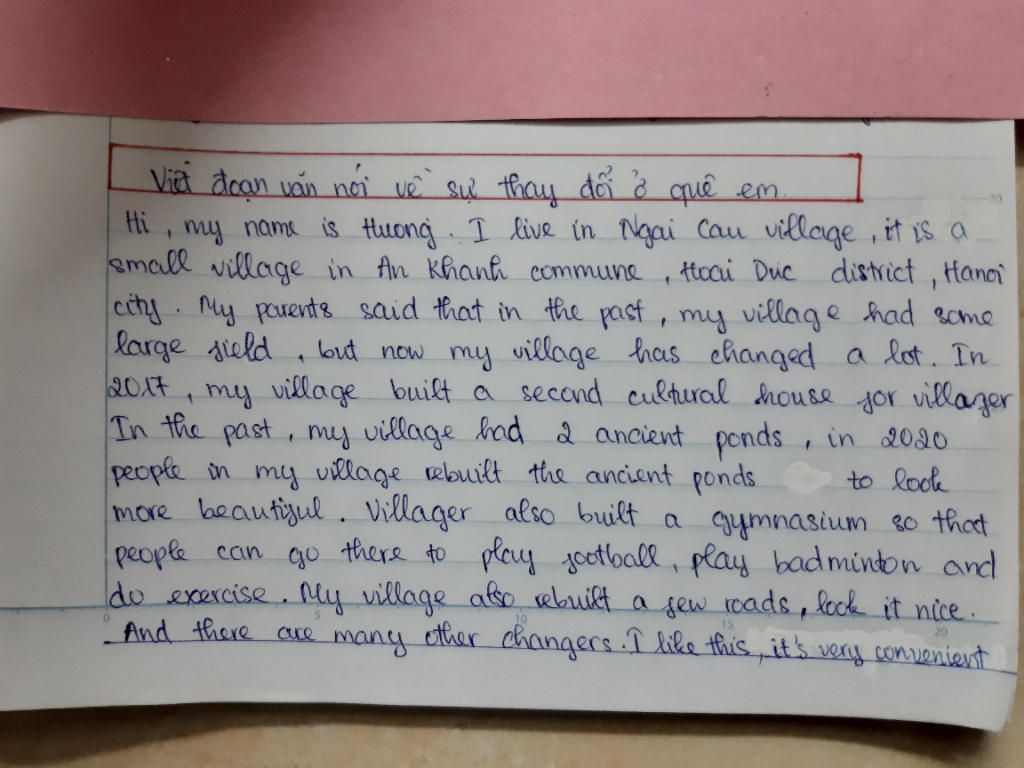 Viết đoạn văn nói về sự thay đổi ở quê em.
Hi, my name is Huong. I live in Ngai Cau village, it is a
small village in An Khanh commune, Hoai Duc district, Hanoi
city. My parents said that in the past, my village had some
large field, but now my village has changed a lot. In
2017, my village built a second cultural house for villager
In the past, my village had 2 ancient ponds, in 2020
people in my village rebuilt the ancient ponds to look
more beautiful. Villager also built a gymnasium so that
people can go there to play football, play badminton and
do exercise. My village also rebuilt a few roads, look it nice.
And there are many other changers. I like this, it's very convenient